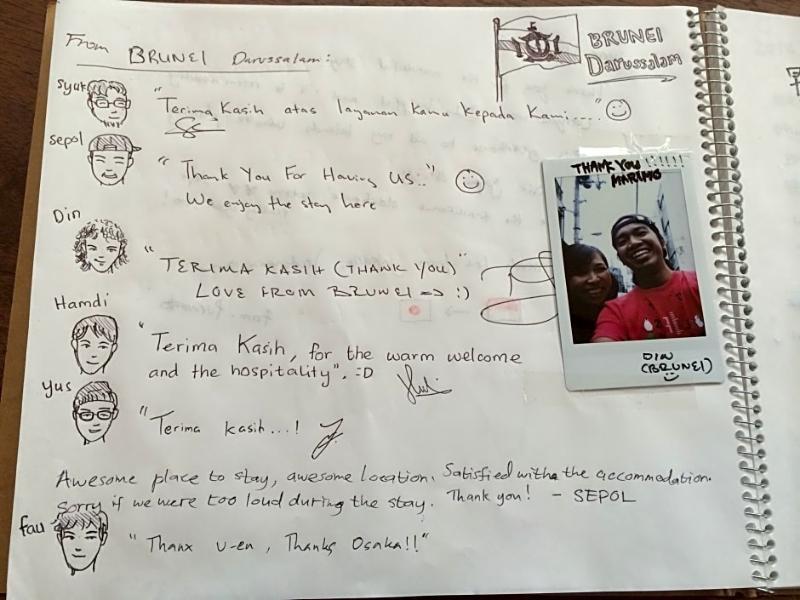 From BRUNEI Darussalam:
BRUNEI
Darussalam
Syuk
"Terima Kasih atas layanan kamu kepada kami...."
sepol
"Thank You For Having US.."
We enjoy the stay here
Din
"TERIMA KASIH (THANK YOU)"
LOVE FROM BRUNEI => :)
Hamdi
"Terima Kasih, for the warm welcome
and the hospitality". :D
Yus
"Terima kasih...!
Awesome place to stay, awesome location. Satisfied with the accommodation.
Sorry if we were too loud during the stay. Thank you! - SEPOL
fau
"Thanx u-en, Thanks Osaka!!"
THANK YOU !!!!!!
MARIMO
DIN
(BRUNEI)